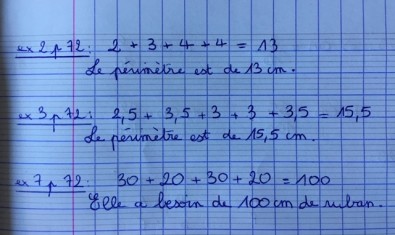 ex 2 p 72 : 2 + 3 + 4 + 4 = 13
Le périmètre est de 13 cm.
ex 3 p 72 : 2,5 + 3,5 + 3 + 3 + 3,5 = 15,5
Le périmètre est de 15,5 cm.
ex 7 p 72 : 30 + 20 + 30 + 20 = 100
Elle a besoin de 100 cm de ruban.